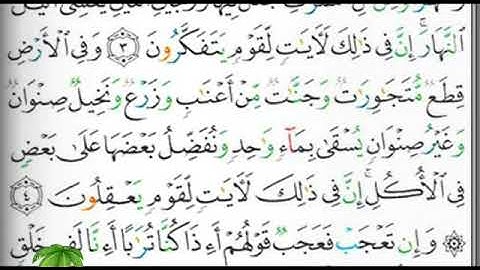 ٱلنَّهَارَ ۚ إِنَّ فِى ذَٰلِكَ لَـَٔايَـٰتٍ لِّقَوْمٍ يَتَفَكَّرُونَ ٣ وَفِى ٱلْأَرْضِ
قِطَعٌ مُّتَجَـٰوِرَٰتٌ وَجَنَّـٰتٌ مِّنْ أَعْنَـٰبٍ وَزَرْعٌ وَنَخِيلٌ صِنْوَانٌ
وَغَيْرُ صِنْوَانٍ يُسْقَىٰ بِمَآءٍ وَٰحِدٍ وَنُفَضِّلُ بَعْضَهَا عَلَىٰ بَعْضٍ
فِى ٱلْأُكُلِ ۚ إِنَّ فِى ذَٰلِكَ لَـَٔايَـٰتٍ لِّقَوْمٍ يَعْقِلُونَ ٤
۞ وَإِن تَعْجَبْ فَعَجَبٌ قَوْلُهُمْ أَءِذَا كُنَّا تُرَٰبًا أَءِنَّا لَفِى خَلْقٍ